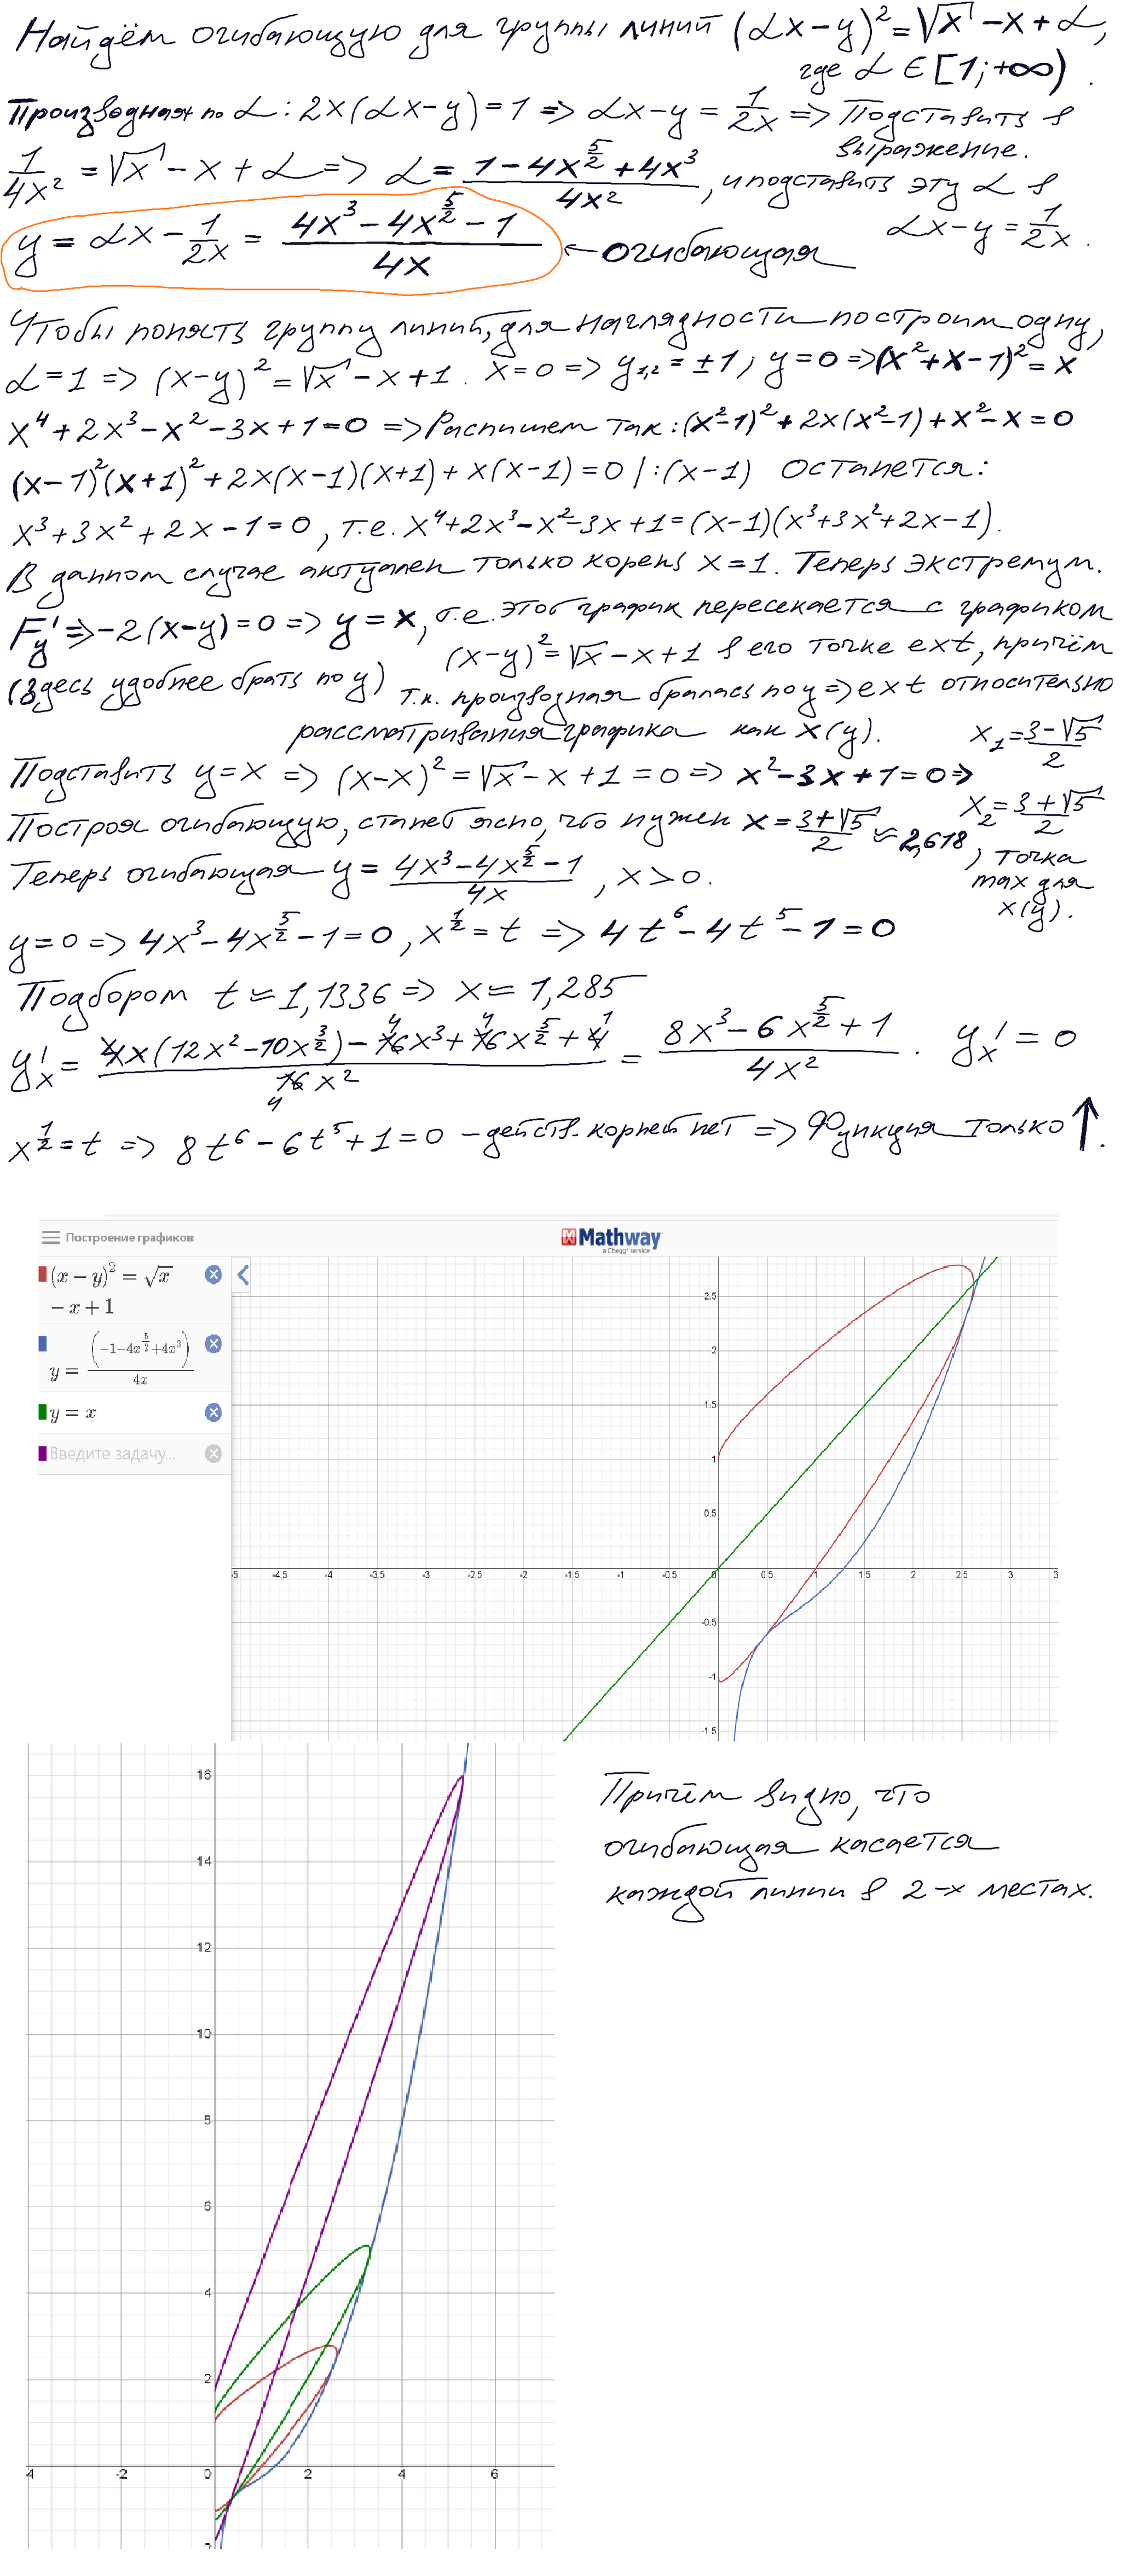 Найдём огибающую для группы линий (αx−y)² = √x − x + α,
где α ∈ [1; +∞).
Производная по α: 2x(αx−y) = 1 => αx−y = 1/(2x) => Подставить в
выражение.
1/(4x²) = √x − x + α => α = (1 − 4x^(5/2) + 4x³)/(4x²), и подставить эту α в
αx−y = 1/(2x).
y = αx − 1/(2x) = (4x³ − 4x^(5/2) − 1)/(4x) ← огибающая
Чтобы понять группу линий, для наглядности построим одну,
α = 1 => (x−y)² = √x − x + 1. x=0 => y₁,₂ = ±1; y=0 => (x²+x−1)² = x
x⁴ + 2x³ − x² − 3x + 1 = 0 => Распишем так: (x²−1)² + 2x(x²−1) + x² − x = 0
(x−1)²(x+1)² + 2x(x−1)(x+1) + x(x−1) = 0 |:(x−1) Останется:
x³ + 3x² + 2x − 1 = 0, т.е. x⁴+2x³−x²−3x+1 = (x−1)(x³+3x²+2x−1).
В данном случае актуален только корень x=1. Теперь экстремум.
F'y => −2(x−y) = 0 => y = x, т.е. этот график пересекается с графиком
(x−y)² = √x − x + 1 в его точке ext, причём
(здесь удобнее брать по y) т.к. производная бралась по y => ext относительно
рассматривания графика как x(y).
Подставить y=x => (x−x)² = √x − x + 1 = 0 => x² − 3x + 1 = 0 => x₁ = (3−√5)/2
x₂ = (3+√5)/2
Построя огибающую, станет ясно, что нужен x = (3+√5)/2 ≈ 2,618, точка
max для
x(y).
Теперь огибающая y = (4x³ − 4x^(5/2) − 1)/(4x), x>0.
y=0 => 4x³ − 4x^(5/2) − 1 = 0, x^(1/2) = t => 4t⁶ − 4t⁵ − 1 = 0
Подбором t ≈ 1,1336 => x ≈ 1,285
y'x = (4x(12x² − 10x^(3/2)) − 16x³ + 16x^(5/2) + 4)/(16x²) = (8x³ − 6x^(5/2) + 1)/(4x²). y'x = 0
x^(1/2) = t => 8t⁶ − 6t⁵ + 1 = 0 − действ. корней нет => Функция только ↑.
Построение графиков
Mathway
a Chegg service
(x − y)² = √x
− x + 1
y = (−1−4x^(5/2)+4x³)/(4x)
y = x
Введите задачу...
2.5
2
1.5
1
0.5
-5 -4.5 -4 -3.5 -3 -2.5 -2 -1.5 -1 -0.5 0 0.5 1 1.5 2 2.5 3 3
-0.5
-1
-1.5
16
14
12
10
8
6
4
2
4 -2 0 2 4 6
Причём видно, что
огибающая касается
каждой линии в 2-х местах.